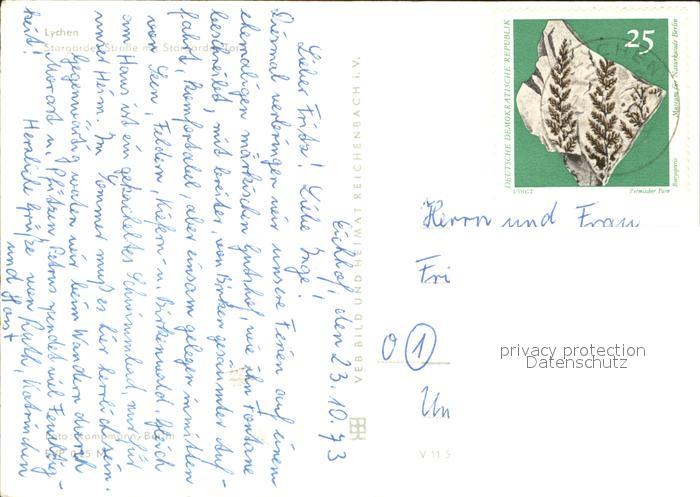 Lychen
Stargarder Straße mit Stargarder Tor
Eichhof, den 23.10.73
Lieber Fritz! Liebe Inge!
Diesmal verbringen wir unsere Ferien auf einem
ehemaligen märkischen Gutshof, wie ihn Fontane
beschreibt, mit breiter, von Birken gesäumter Auf-
fahrt, komfortabel, aber einsam gelegen inmitten
von Seen, Feldern, Kiefern- u. Birkenwald. Gleich
am Haus ist ein gekacheltes Schwimmbad, nur für
unser Heim. Im Sommer muß es hier herrlich sein.
Gegenwärtig waten wir beim Wandern durch
Morast u. Pfützen. Petrus sendet viel Feuchtig-
keit! Herzliche Grüße von Ruth, Katrinchen
und Horst
VEB BILD UND HEIMAT REICHENBACH I. V.
V 11 5
DEUTSCHE DEMOKRATISCHE REPUBLIK
25
Museum für Naturkunde Berlin
VOIGT
Permischer Farn
LYCHEN
Herrn und Frau
Fri
O 1
Un
privacy protection
Datenschutz